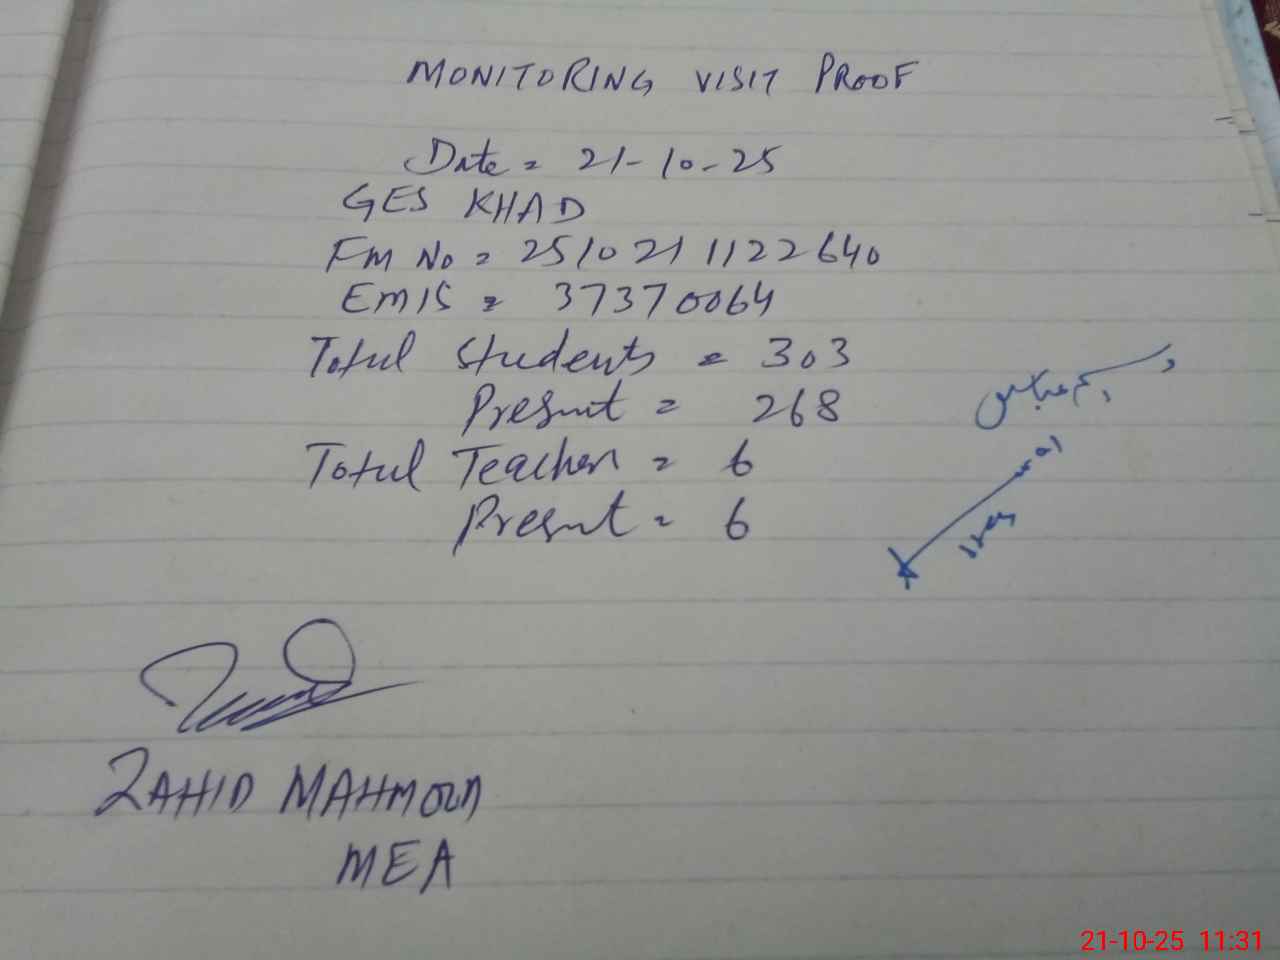 MONITORING VISIT PROOF
Date = 21-10-25
GES KHAD
FM No = 2510211122640
EMIS = 37370064
Total Students = 303
Present = 268
Total Teacher = 6
Present = 6
وسیم عباس
ZAHID MAHMOOD
MEA
21-10-25 11:31